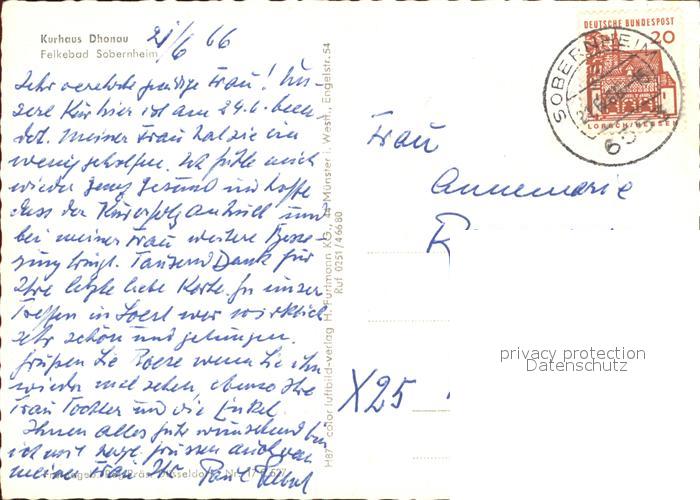 Kurhaus Dhonau
Felkebad Sobernheim
21/6 66
Sehr verehrte gnädige Frau! Un-
sere Kur hier ist am 24.6. been-
det. Meiner Frau hat sie ein
wenig geholfen. Ich fühle mich
wieder ganz gesund und hoffe
dass der Kurerfolg anhält und
bei meiner Frau weitere Besse-
rung bringt. Tausend Dank für
Ihre letzte liebe Karte. Ja unser
Treffen in Soest war wirklich
sehr schön und gelungen.
Grüssen Sie Boese wenn Sie ihn
wieder mal sehen, ebenso Ihre
Frau Tochter und die Enkel.
Ihnen alles gute wünschend bin
ich mit grüssen auch von
meiner Frau Ihr Paul
H87 color luftbild-verlag H. Furtmann KG., 44 Münster i. Westf., Engelstr. 54
Ruf 0251/46680
DEUTSCHE BUNDESPOST
20
LORSCH/HESSEN
SOBERNHEIM
6553
Frau
Annemarie
X25
privacy protection
Datenschutz